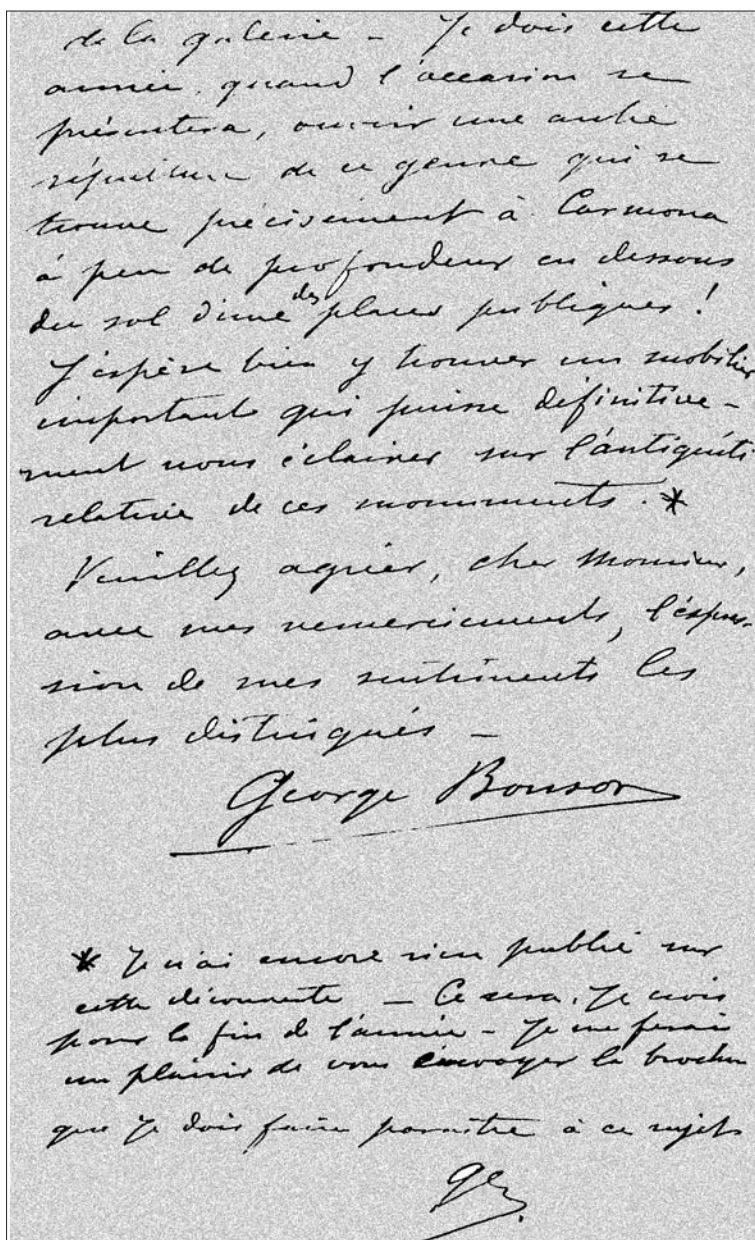 de la galerie — Je dois cette
année, quand l'occasion se
présentera, ouvrir une autre
sépulture de ce genre qui se
trouve précisément à Carmona
à peu de profondeur en dessous
du sol d'une des places publiques !
J'espère bien y trouver un mobilier
important qui puisse définitive-
ment nous éclairer sur l'antiquité
relative de ces monuments. *
Veuillez agréer, cher Monsieur,
avec mes remerciements, l'expres-
sion de mes sentiments les
plus distingués —
George Bonsor
* Je n'ai encore rien publié sur
cette découverte — Ce sera, Je crois
pour la fin de l'année — Je me ferai
un plaisir de vous envoyer la brochure
que je dois faire paraître à ce sujet